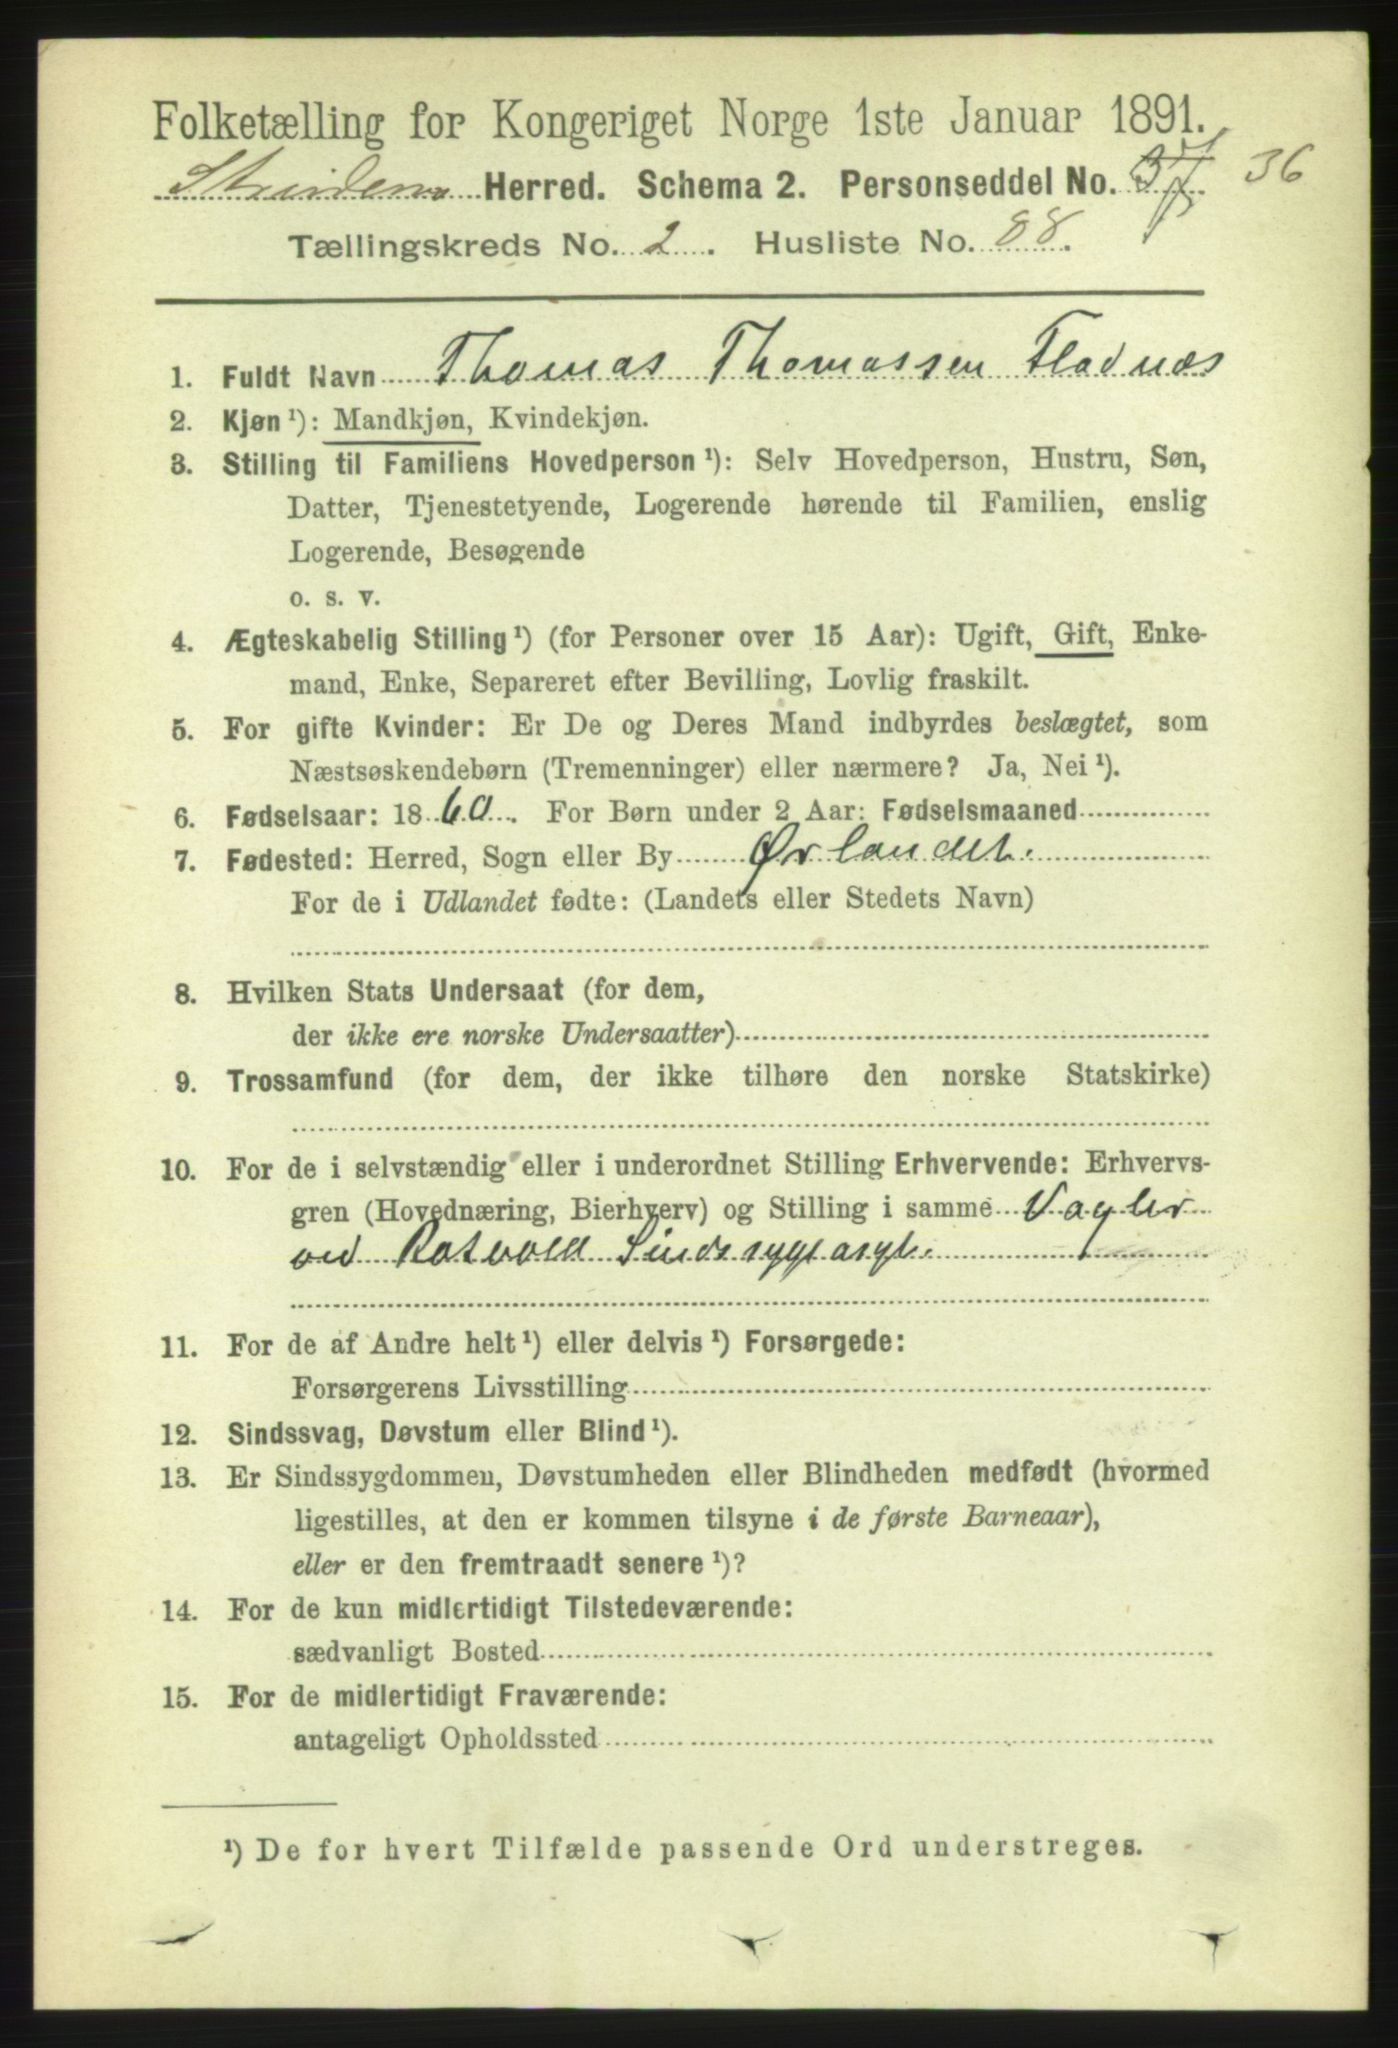 Folketælling for Kongeriget Norge 1ste Januar 1891.
Strinden Herred. Schema 2. Personseddel No. 37 36
Tællingskreds No. 2. Husliste No. 88.
1. Fuldt Navn Thomas Thomassen Fladnæs
2. Kjøn ¹): Mandkjøn, Kvindekjøn.
3. Stilling til Familiens Hovedperson ¹): Selv Hovedperson, Hustru, Søn,
Datter, Tjenestetyende, Logerende hørende til Familien, enslig
Logerende, Besøgende
o. s. v.
4. Ægteskabelig Stilling ¹) (for Personer over 15 Aar): Ugift, Gift, Enke-
mand, Enke, Separeret efter Bevilling, Lovlig fraskilt.
5. For gifte Kvinder: Er De og Deres Mand indbyrdes beslægtet, som
Næstsøskendebørn (Tremenninger) eller nærmere? Ja, Nei ¹).
6. Fødselsaar: 1860. For Børn under 2 Aar: Fødselsmaaned
7. Fødested: Herred, Sogn eller By Ørlandet.
For de i Udlandet fødte: (Landets eller Stedets Navn)
8. Hvilken Stats Undersaat (for dem,
der ikke ere norske Undersaatter)
9. Trossamfund (for dem, der ikke tilhøre den norske Statskirke)
10. For de i selvstændig eller i underordnet Stilling Erhvervende: Erhvervs-
gren (Hovednæring, Bierhverv) og Stilling i samme Vogter
ved Rotvold Sindssygeasyl.
11. For de af Andre helt ¹) eller delvis ¹) Forsørgede:
Forsørgerens Livsstilling
12. Sindssvag, Døvstum eller Blind ¹).
13. Er Sindssygdommen, Døvstumheden eller Blindheden medfødt (hvormed
ligestilles, at den er kommen tilsyne i de første Barneaar),
eller er den fremtraadt senere ¹)?
14. For de kun midlertidigt Tilstedeværende:
sædvanligt Bosted
15. For de midlertidigt Fraværende:
antageligt Opholdssted
¹) De for hvert Tilfælde passende Ord understreges.